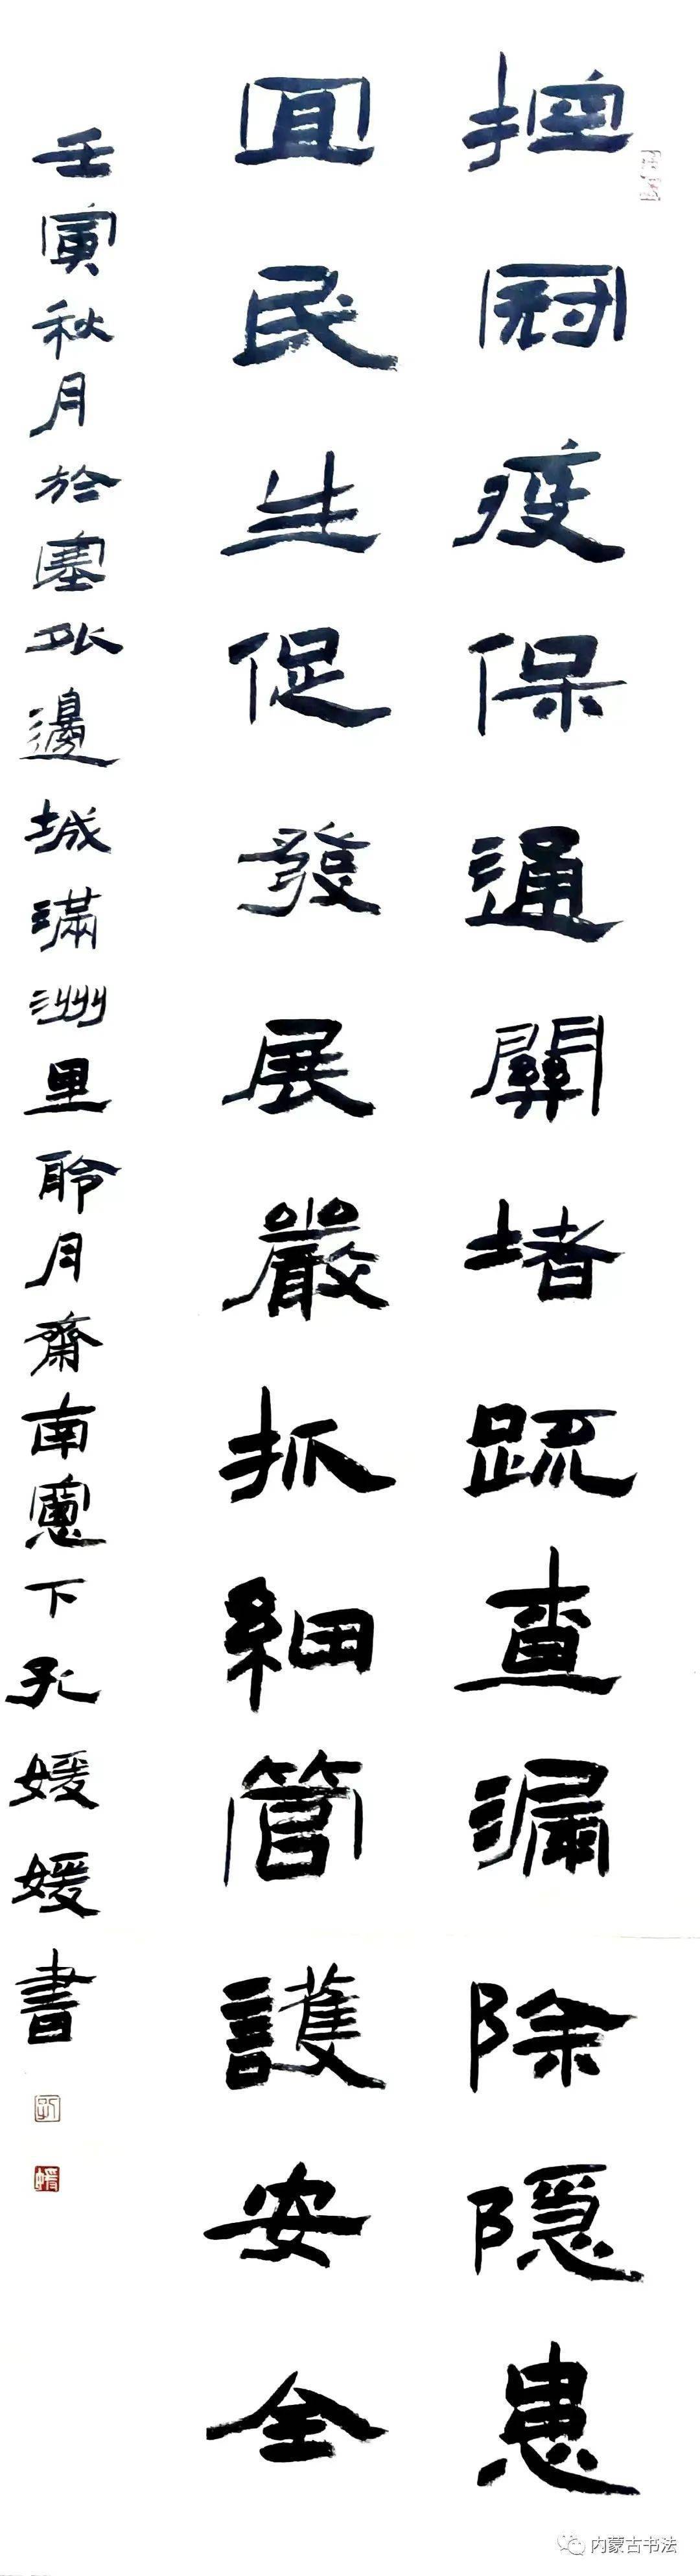 控冠疫保通關堵疏查漏除隐患
宜民生促發展嚴抓細管護安全
壬寅秋月於塞外邊城滿洲里聆月齋南窻下孔媛媛書
孔
内蒙古书法